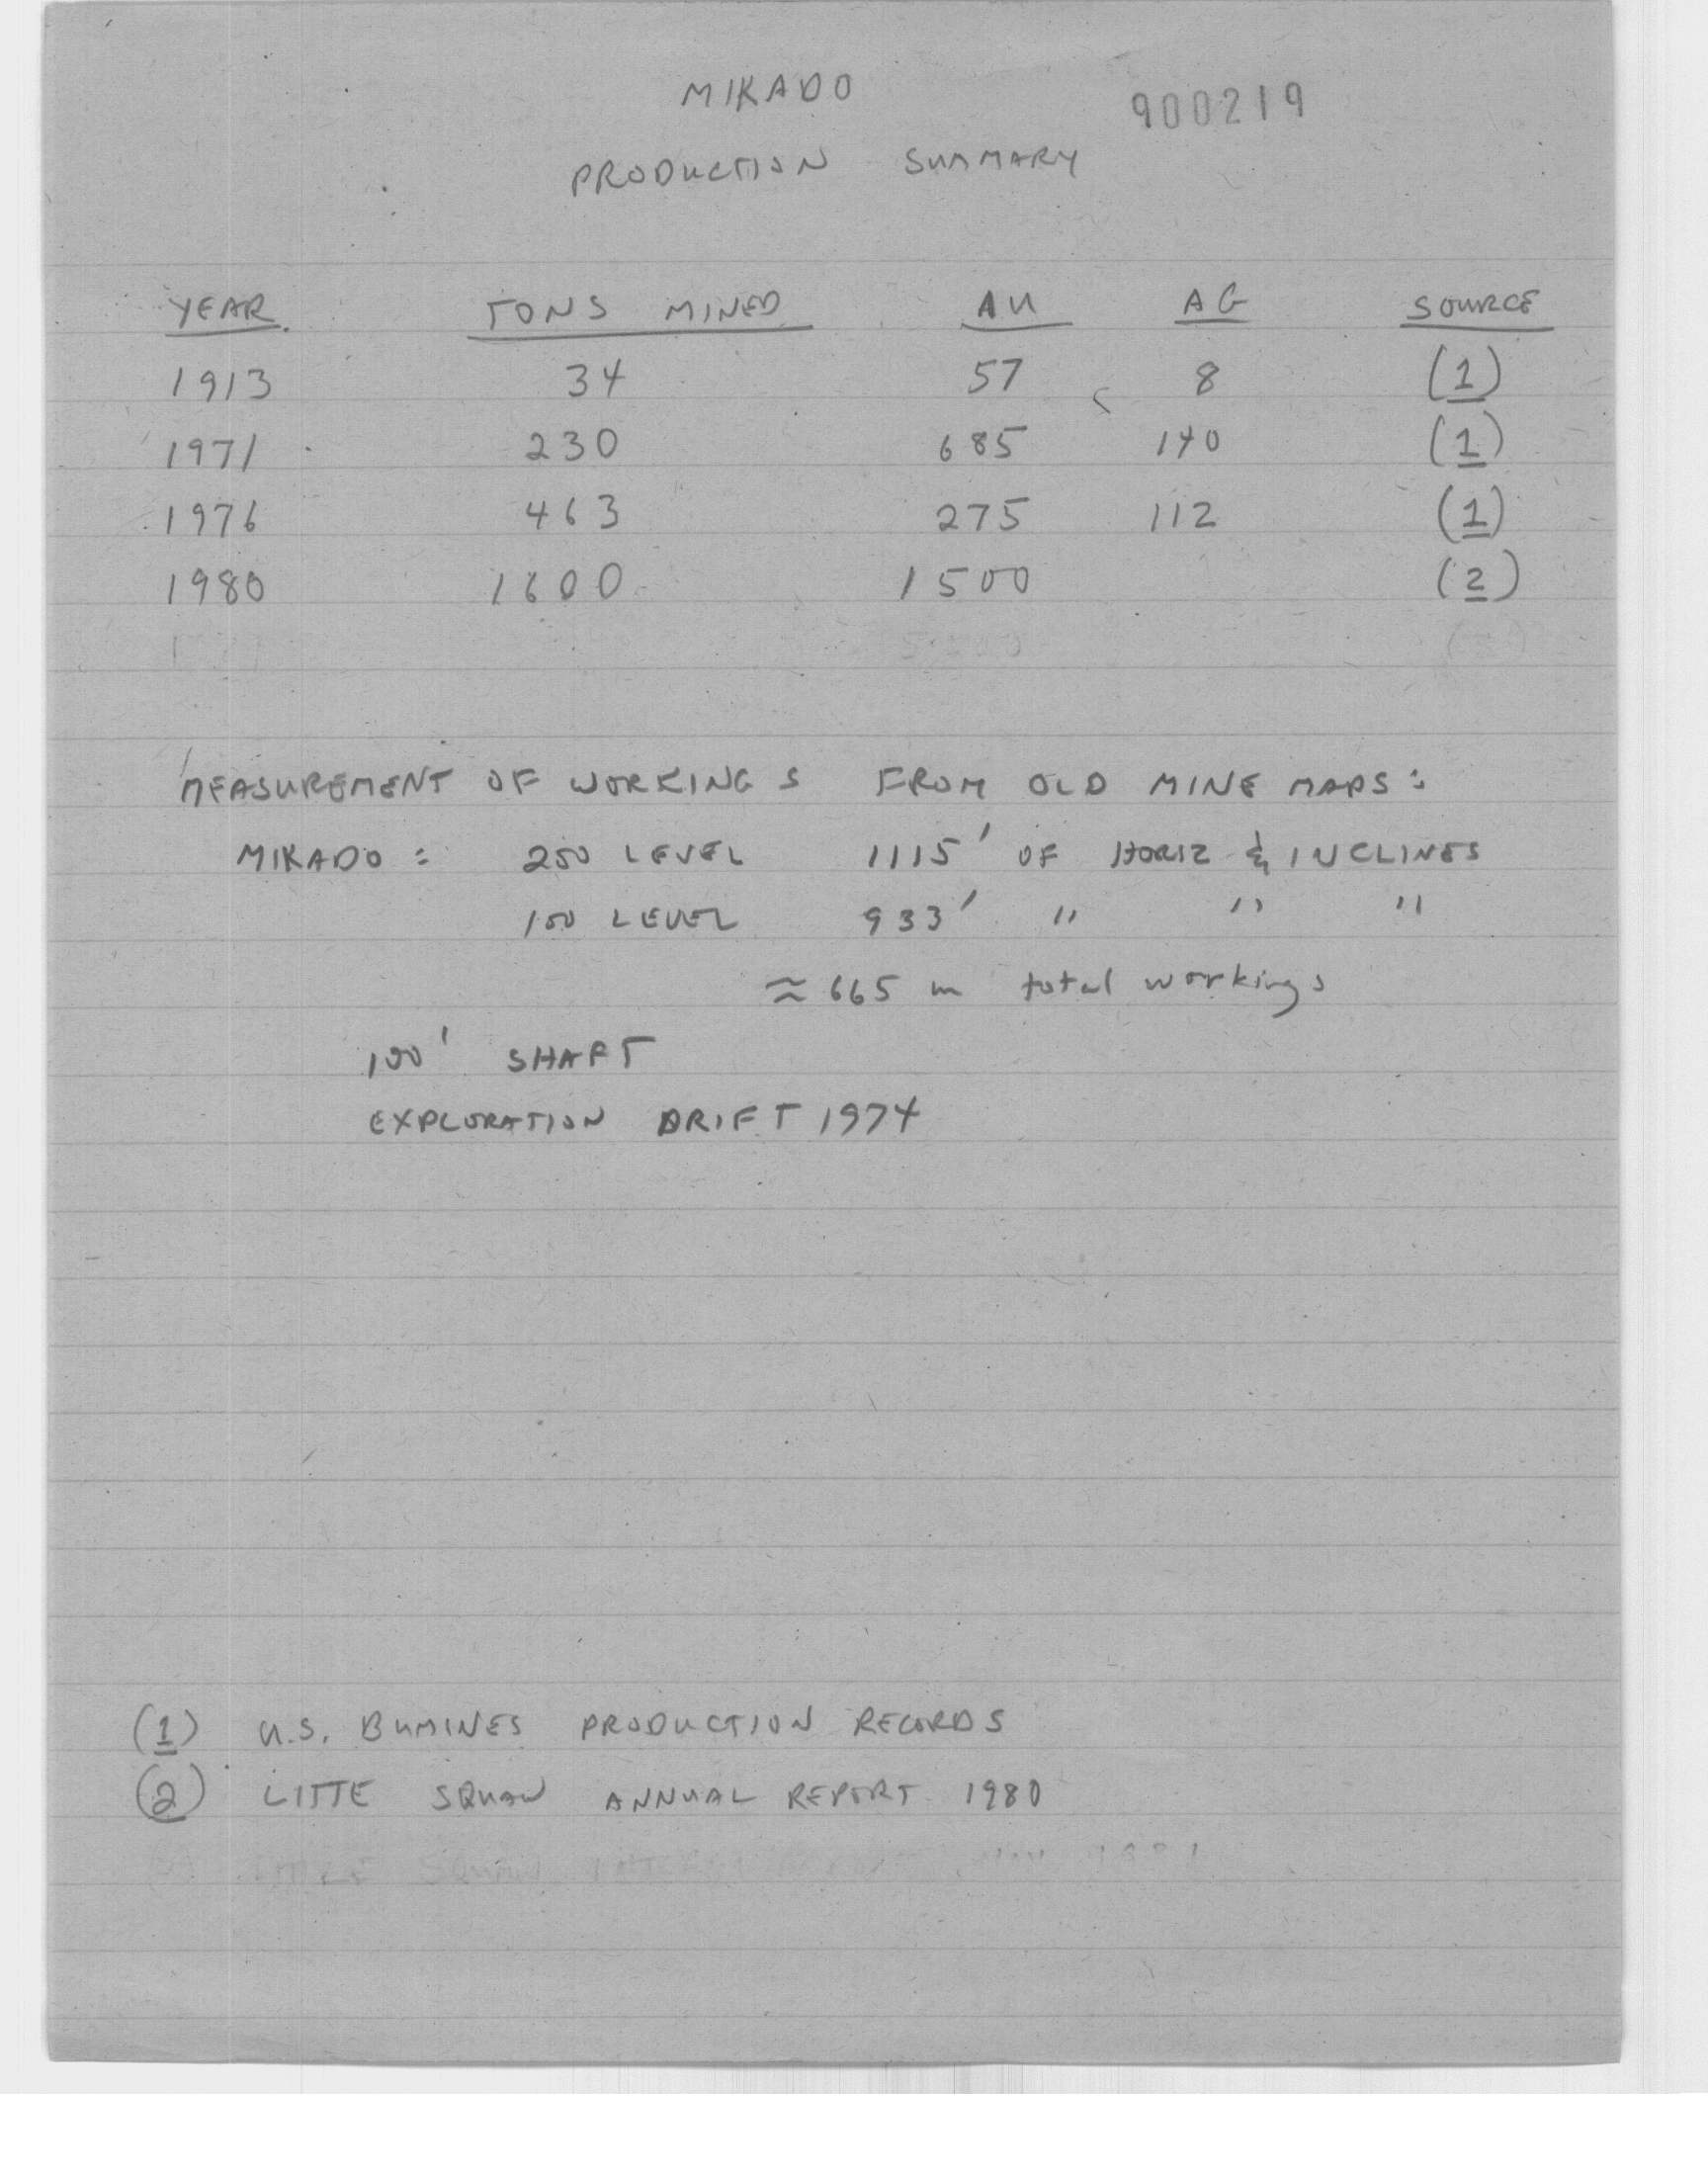 MIKADO
900219
PRODUCTION SUMMARY
YEAR TONS MINED AU AG SOURCE
1913 34 57 8 (1)
1971 230 685 140 (1)
1976 463 275 112 (1)
1980 1600 1500 (2)
MEASUREMENT OF WORKINGS FROM OLD MINE MAPS:
MIKADO: 250 LEVEL 1115' OF HORIZ & INCLINES
100 LEVEL 933' " " "
≈ 665 m total workings
100' SHAFT
EXPLORATION DRIFT 1974
(1) U.S. BUMINES PRODUCTION RECORDS
(2) LITTE SQUAW ANNUAL REPORT 1980